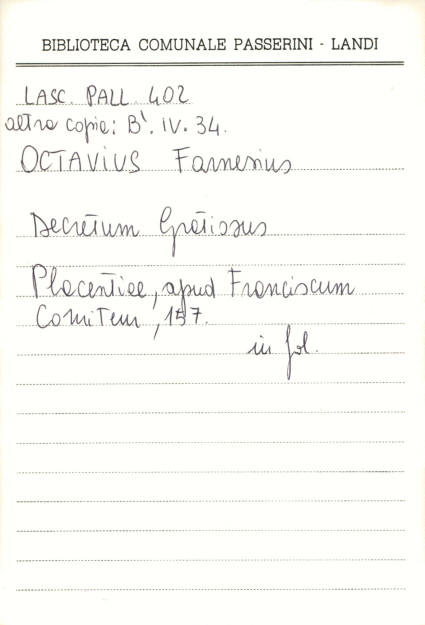 BIBLIOTECA COMUNALE PASSERINI - LANDI
LASC. PALL. 402
altra copia: B'. IV. 34.
OCTAVIUS Farnesius
Decretum
Placentiae, apud Franciscum
Comitem, 157.
in fol.